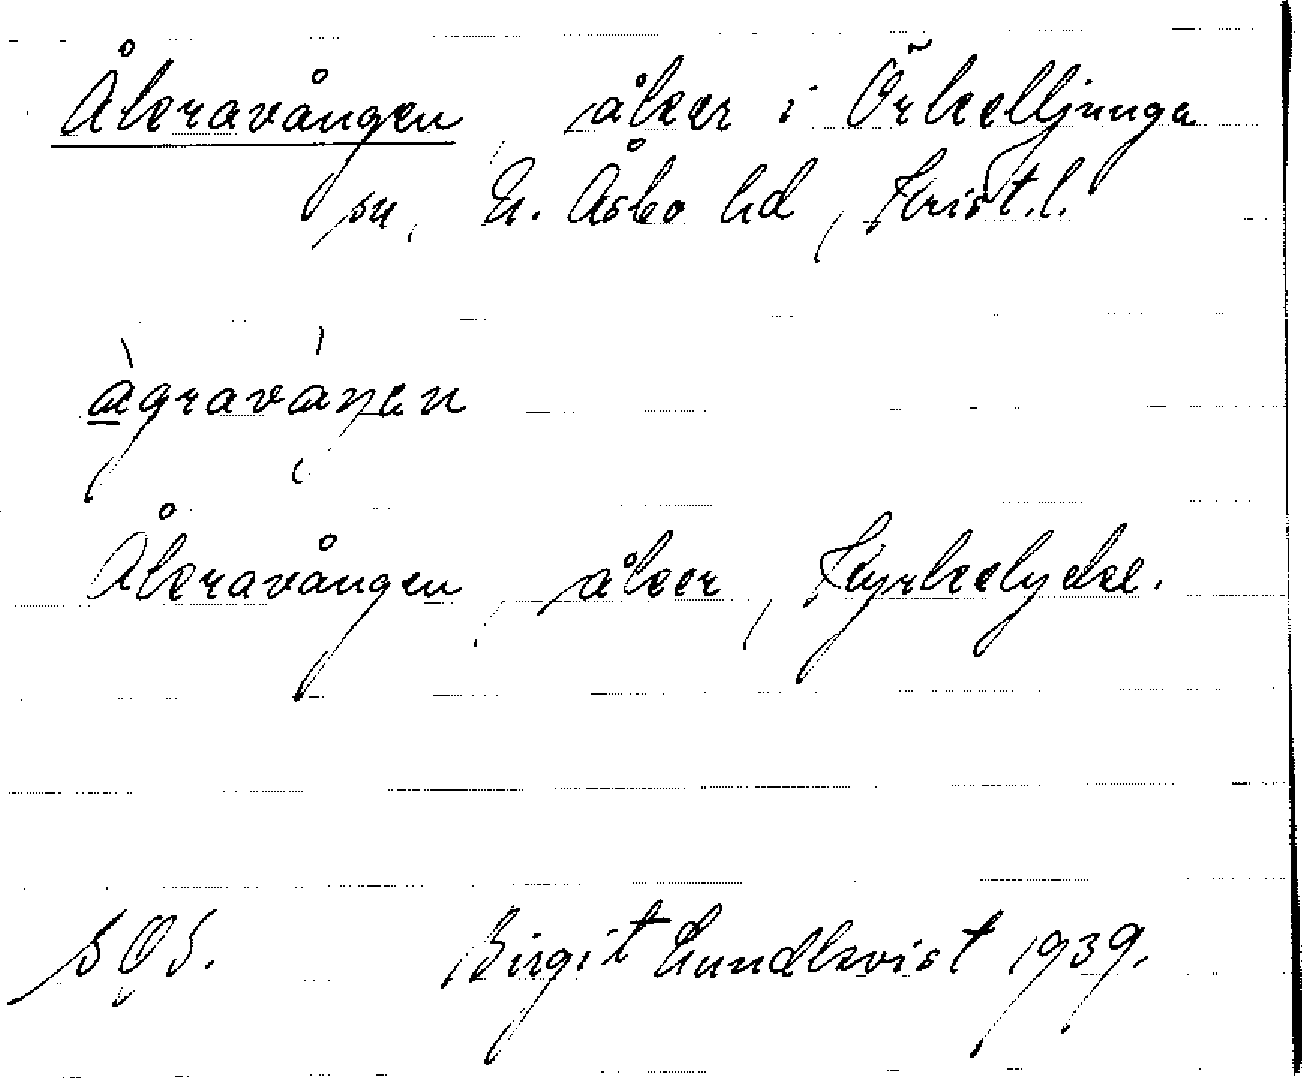 Åkravången, åker i Örkelljunga
sn, N. Åsbo hd, Krist.l.
àgraváŋen
Åkravången, åker, Kyrkelycke.
SOS. Birgit Lundkvist 1939.